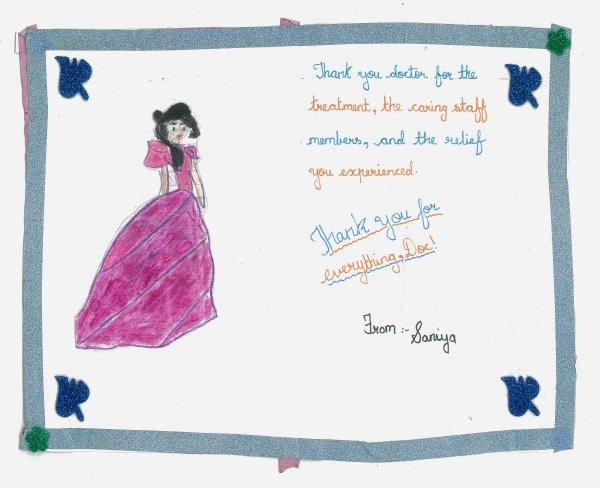 Thank you doctor for the
treatment, the caring staff
members, and the relief
you experienced.
Thank you for
everything, Doc!
From :- Saniya